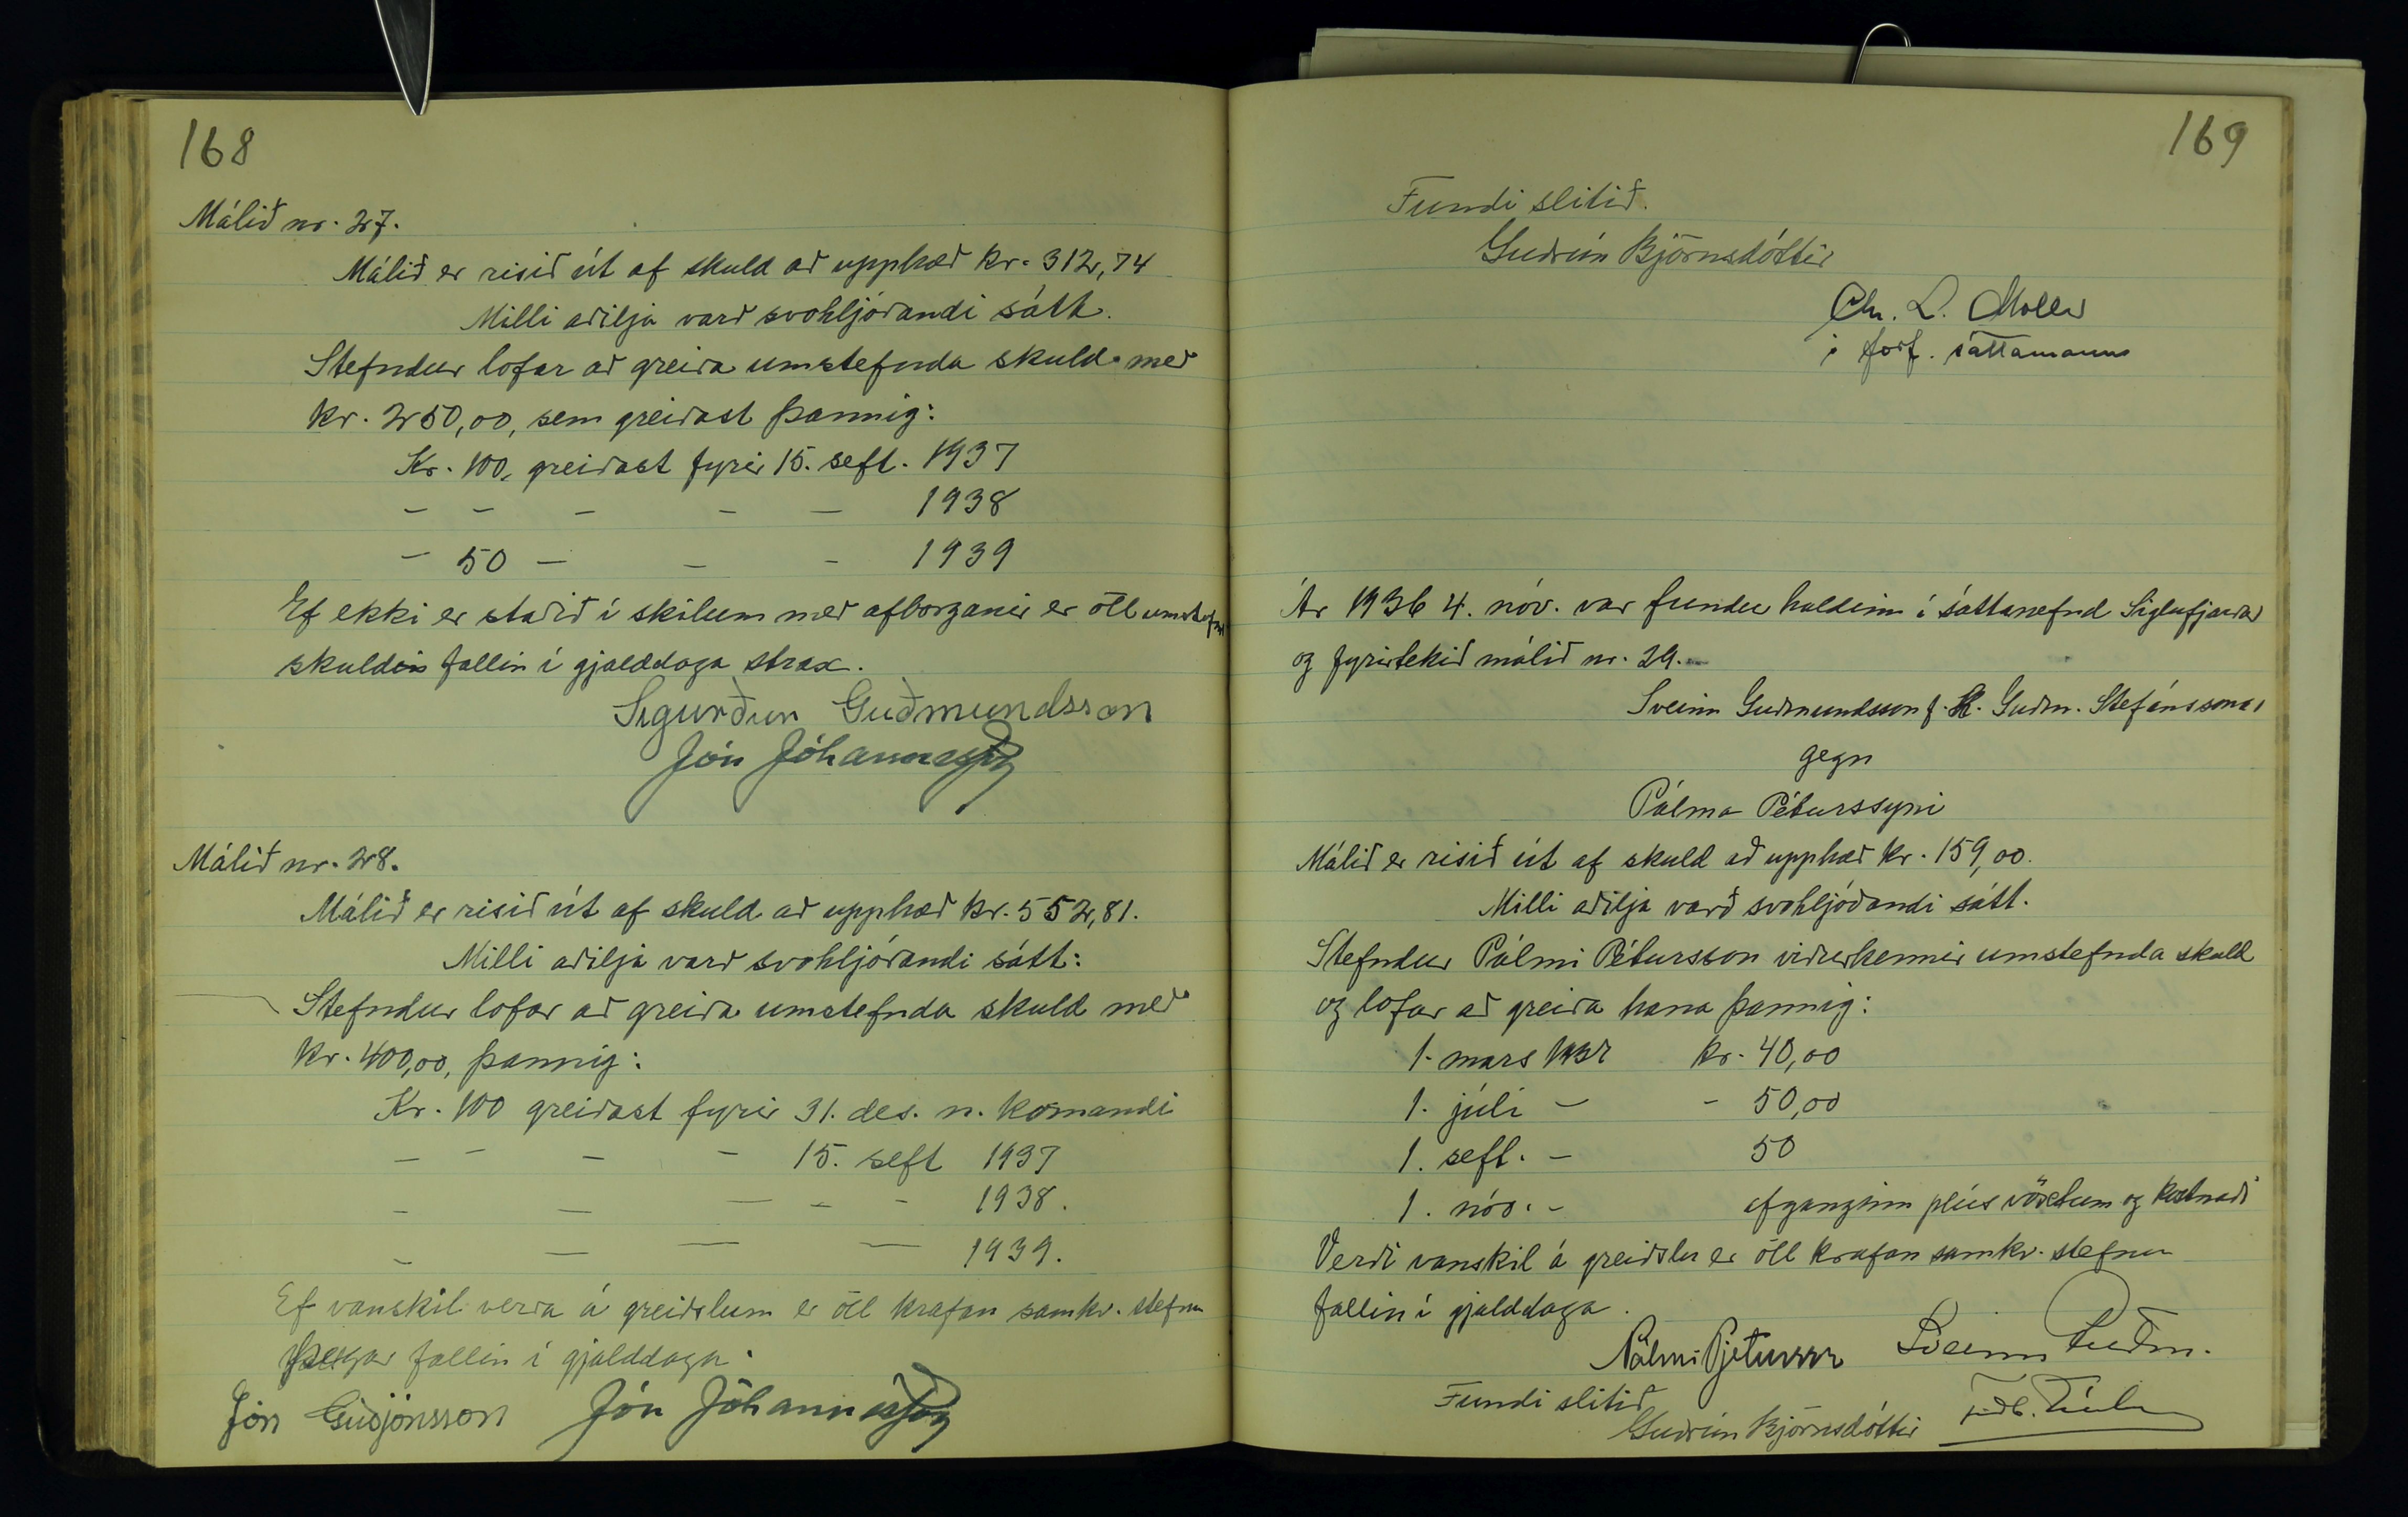 168
Málið nr. 27.
Málið er risið út af skuld að upphæð kr. 312,74
Milli aðilja varð svohljóðandi sátt.
Stefndur lofar að greiða umstefnda skuld með
kr. 250,00, sem greiðast þannig:
Kr. 100, greiðast fyrir 15. sept. 1937
- - - - - 1938
- 50 - - - 1939
Ef ekki er staðið í skilum með afborganir er öll
skuldin fallin í gjalddaga strax.
Sigurður Guðmundsson
Jón Jóhannesson
Málið nr. 28.
Málið er risið út af skuld að upphæð kr. 552,81.
Milli aðilja varð svohljóðandi sátt:
Stefndur lofar að greiða umstefnda skuld með
kr. 400,00, þannig:
Kr. 100 greiðast fyrir 31. des. n. komandi
- - - - 15. sept 1937
- - - - - 1938.
- - - - 1939.
Ef vanskil verða á greiðslum er öll krafan samkv. stefnu
þegar fallin í gjalddaga.
Jón Guðjónsson Jón Jóhannesson
169
Fundi slitið.
Guðrún Björnsdóttir
Chr. L. Möller
í forf. sáttamanns
Ár 1936 4. nóv. var fundur haldinn í sáttanefnd Siglufjarðar
og fyrirtekið málið nr. 29.
Sveinn Guðmundsson f. h. Guðm. Stefánssonar
gegn
Pálma Péturssyni
Málið er risið út af skuld að upphæð kr. 159,00.
Milli aðilja varð svohljóðandi sátt.
Stefndur Pálmi Pétursson viðurkennir umstefnda skuld
og lofar að greiða hana þannig:
1. mars kr. 40,00
1. júlí - - 50,00
1. sept. - 50
1. nóv. - afganginn plús vöxtum og kostnaði
Verði vanskil á greiðslu er öll krafan samkv. stefnu
fallin í gjalddaga.
Pálmi Pjetursson Sveinn Guðm.
Fundi slitið
Guðrún Björnsdóttir